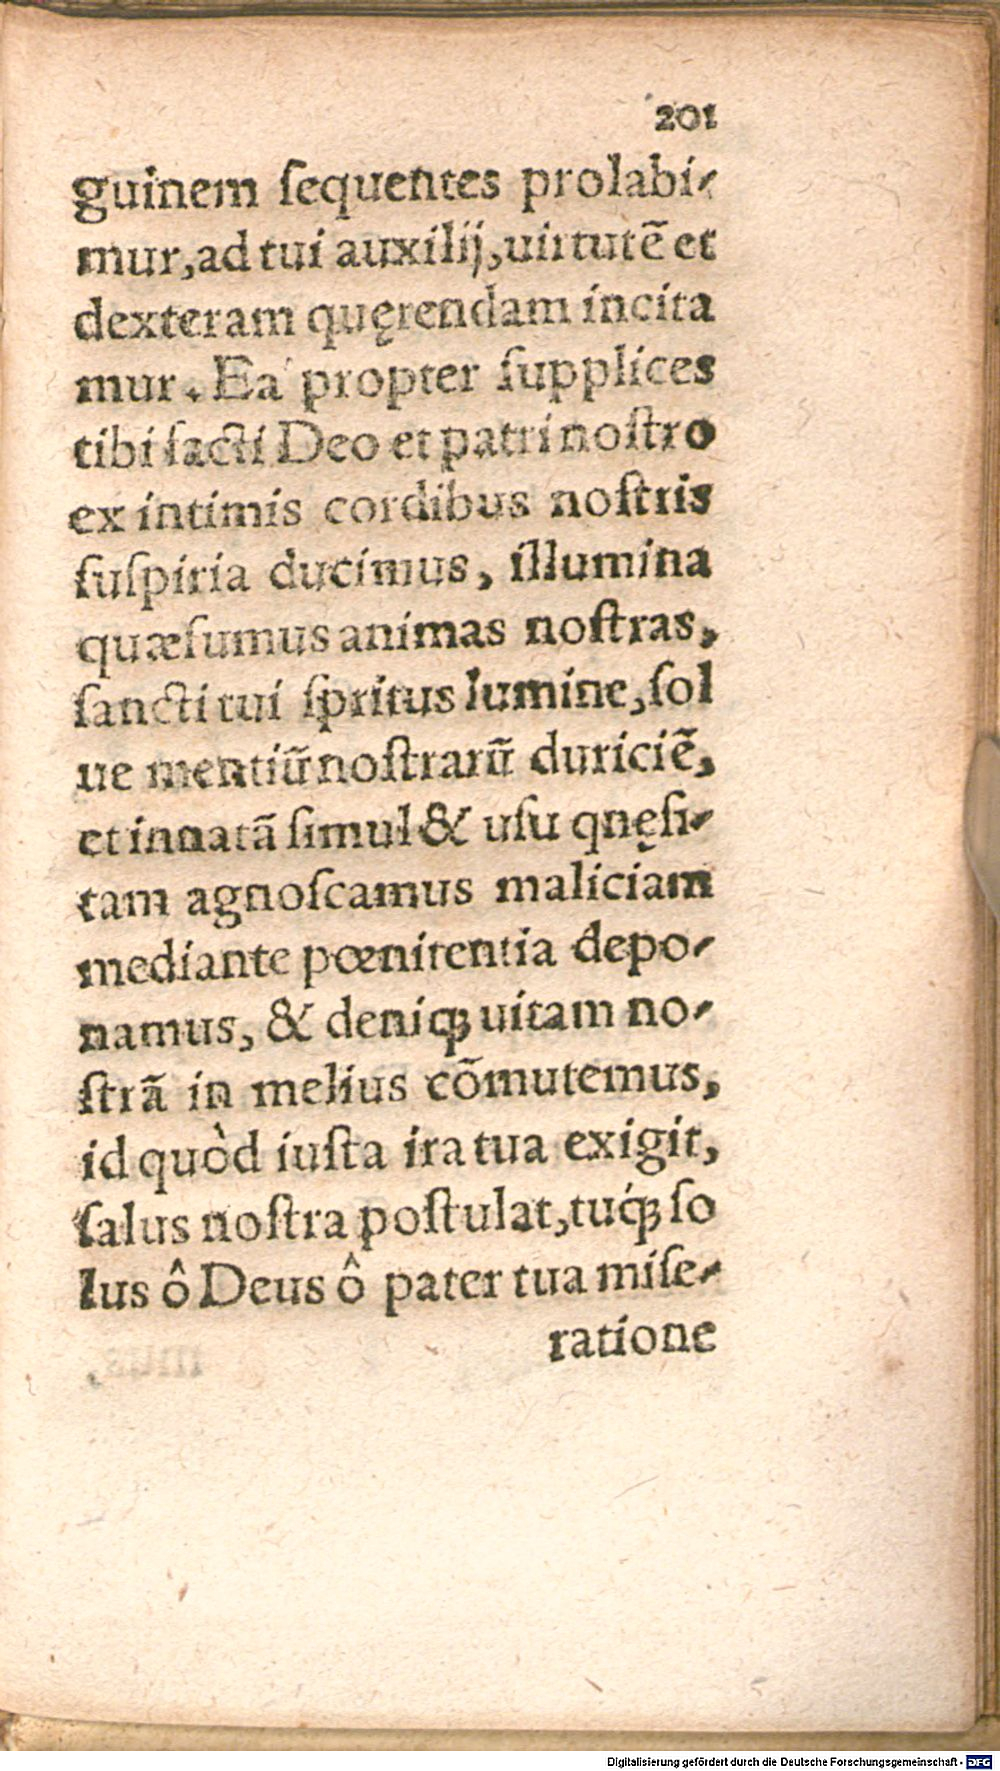 201
guinem ſequentes prolabi-
mur,ad tui auxilij,uirtutē et
dexteram quęrendam incita
mur. Ea propter ſupplices
tibi ſacti Deo et patri noſtro
ex intimis cordibus noſtris
ſuſpiria ducimus, illumina
quæſumus animas noſtras,
ſancti tui ſpritus lumine,ſol
ue mentiū noſtrarū duriciē,
et innatā ſimul & uſu qnęſi-
tam agnoſcamus maliciam
mediante pœnitentia depo-
namus, & deniqꝫ uitam no-
ſtrā in melius cōmutemus,
id quòd iuſta ira tua exigit,
ſalus noſtra poſtulat,tuq́ꝫ ſo
lus ô Deus ô pater tua miſe-
ratione
Digitalisierung gefördert durch die Deutsche Forschungsgemeinschaft - DFG